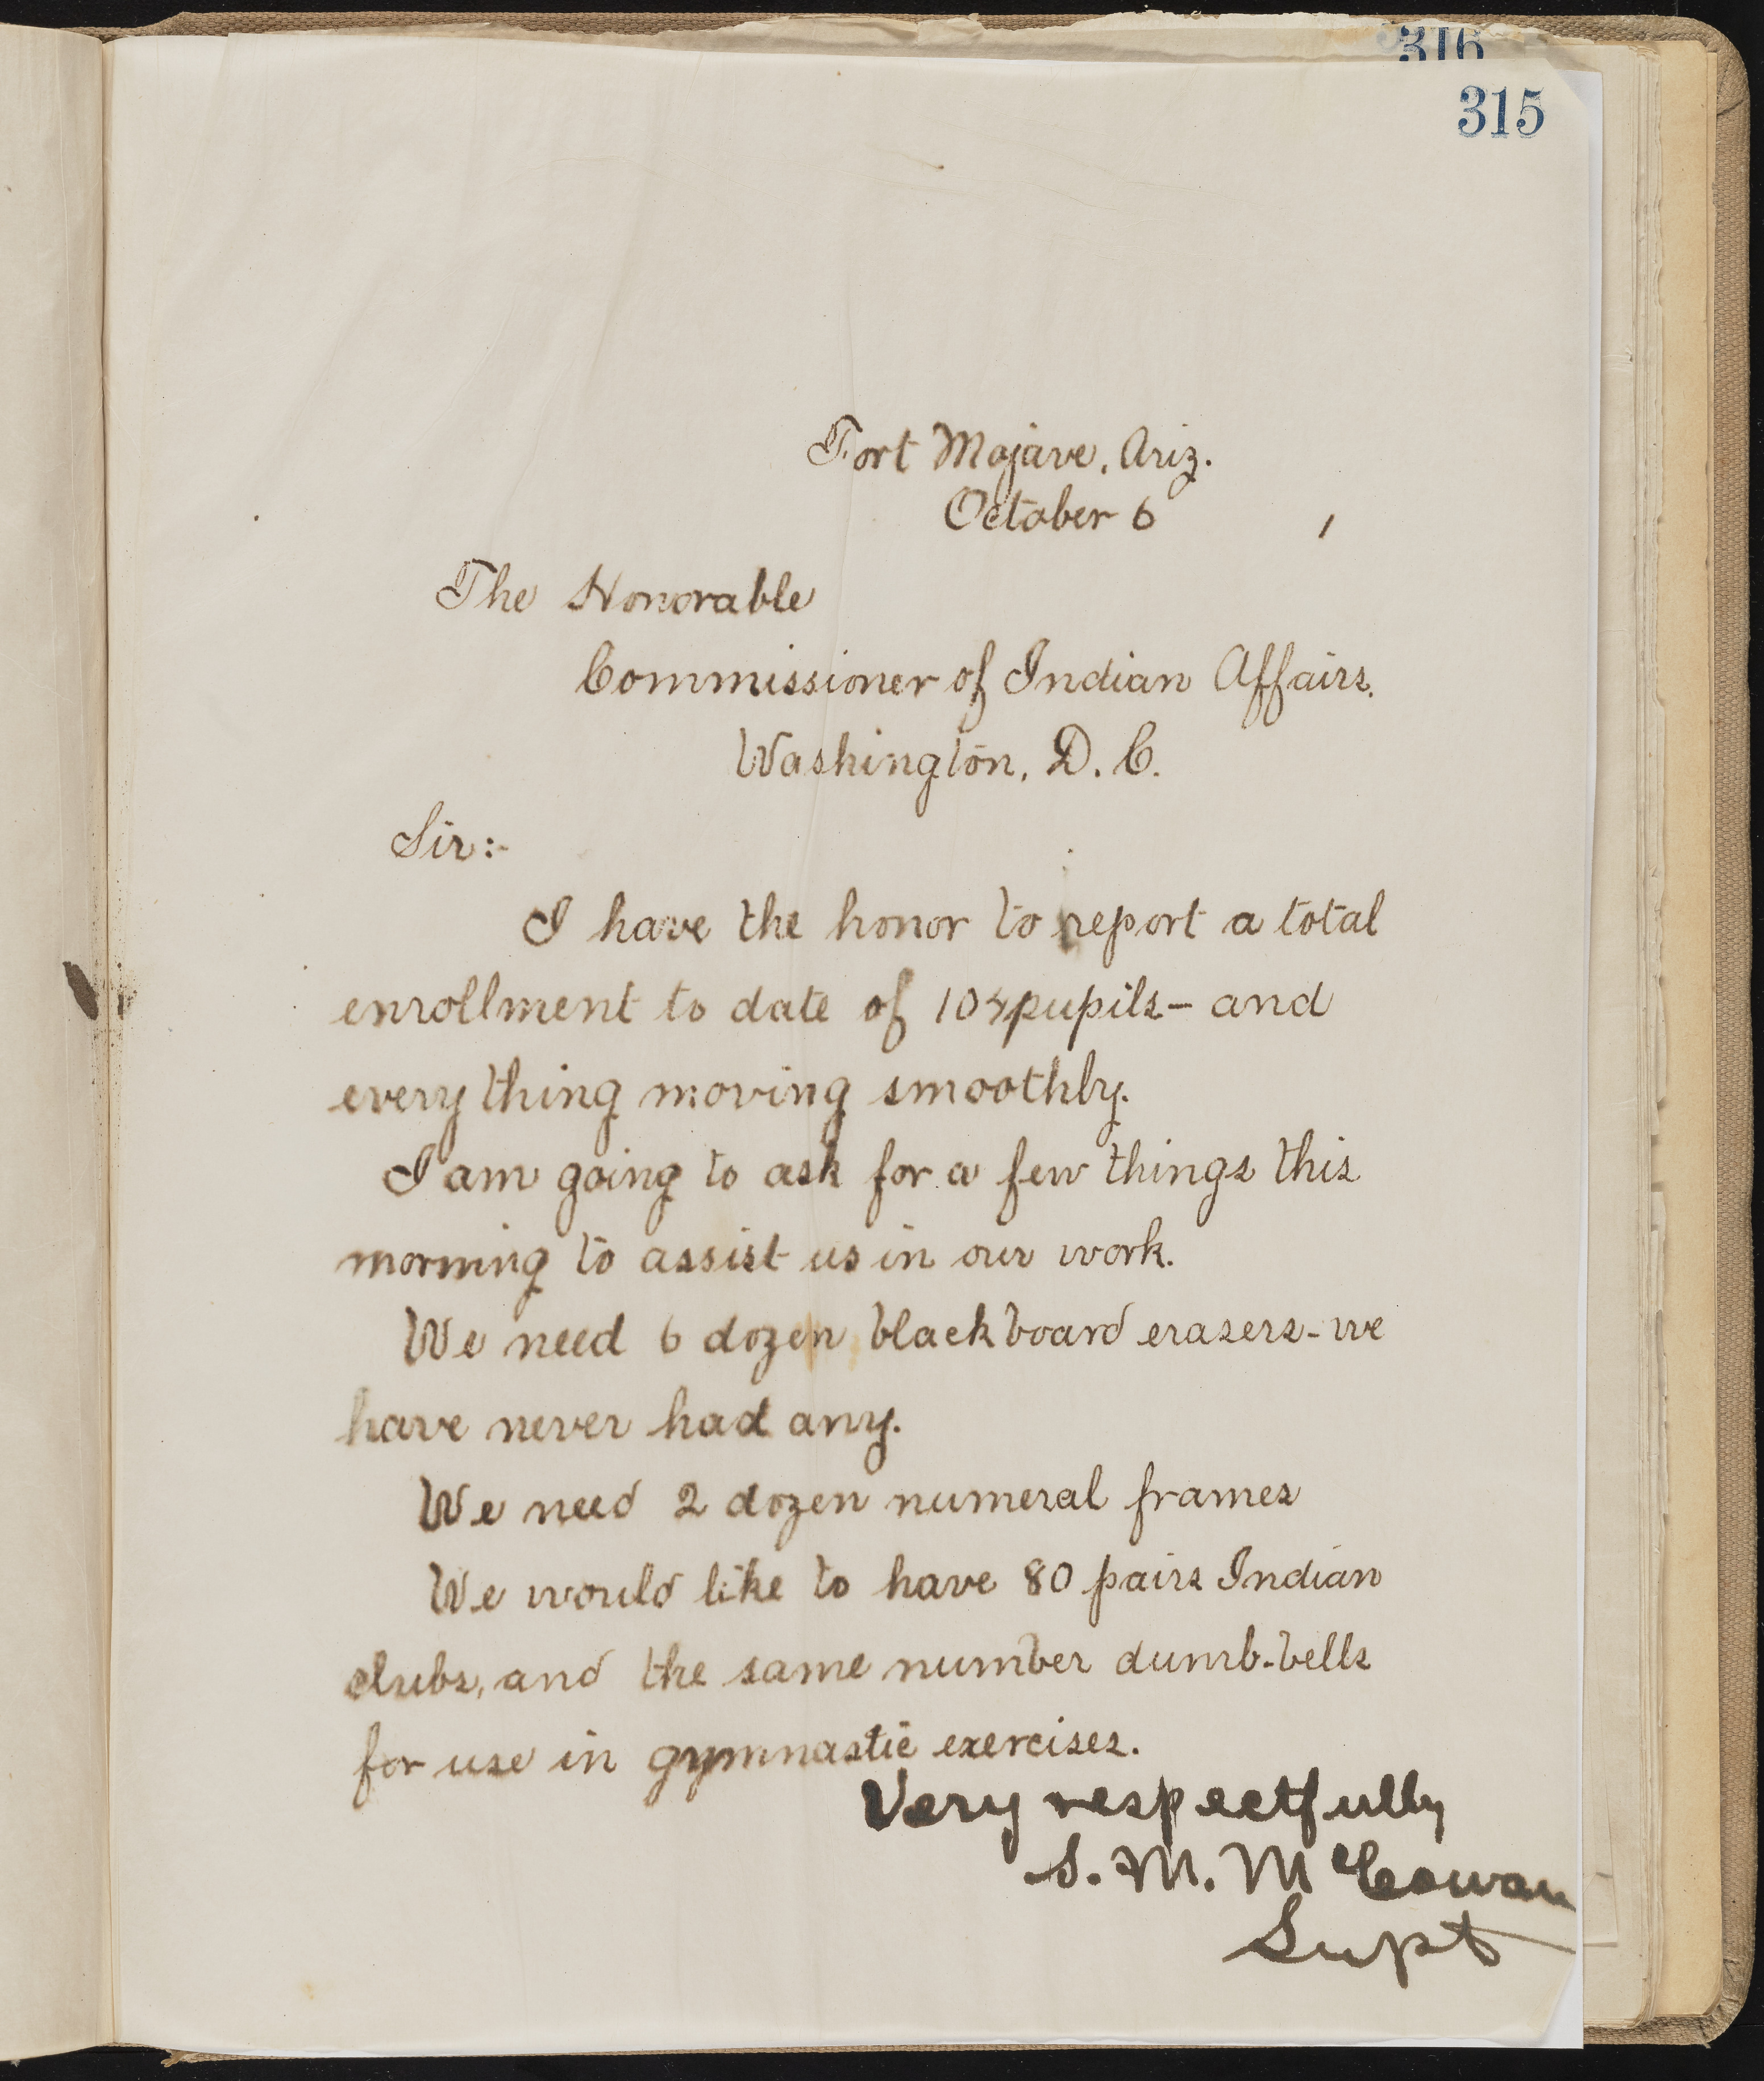 316
315
Fort Mojave, Ariz.
October 6 1
The Honorable
Commissioner of Indian Affairs.
Washington, D. C.
Sir:-
I have the honor to report a total
enrollment to date of pupils - and
everything moving smoothly.
I am going to ask for a few things this
morning to assist us in our work.
We need 6 dozen blackboard erasers - we
have never had any.
We need 2 dozen numeral frames
We would like to have 80 pairs Indian
clubs, and the same number dumb-bells
for use in gymnastic exercises.
Very respectfully
S. M. McCowan
Supt